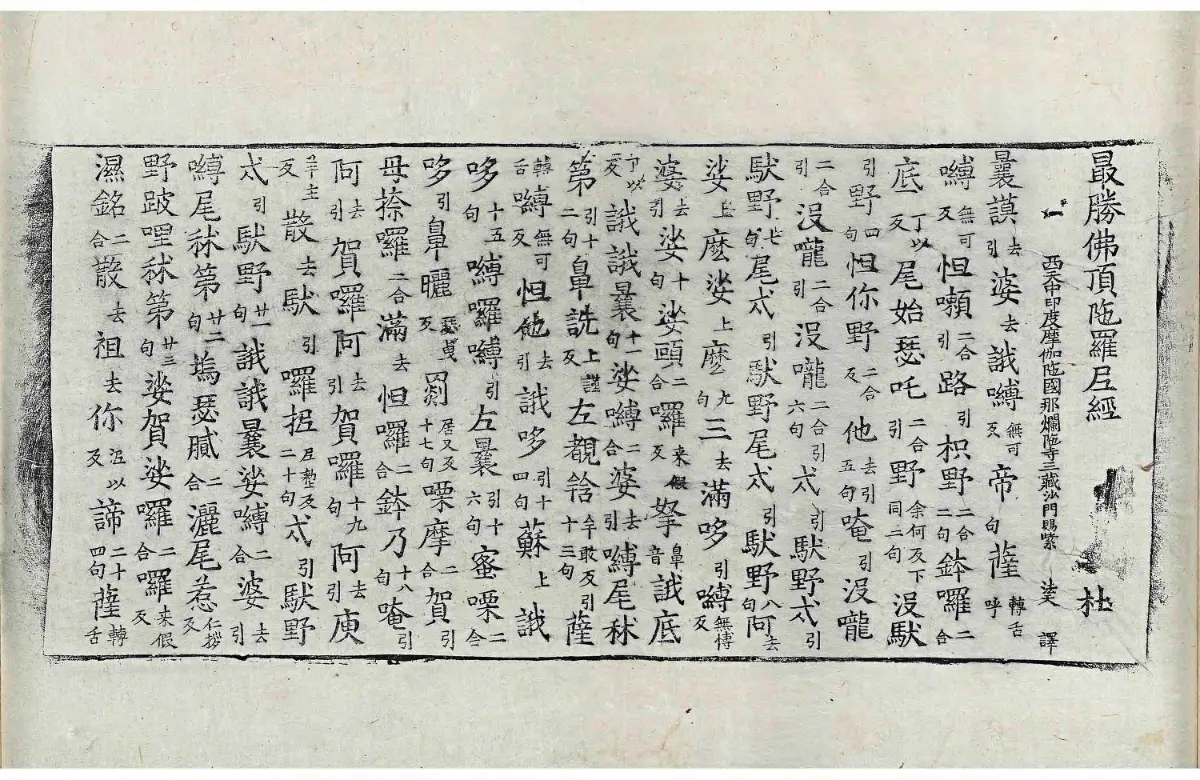 最勝佛頂陁羅尼經 杜
西天中印度摩伽陁國那爛陁寺三藏沙門賜紫 譯
曩謨去引婆去誐嚩無可反帝句薩轉舌呼
嚩無可反怛囕二合引路引枳野二合二句鉢囉二合
底丁以反尾始瑟吒二合引野余何反下同二句沒馱
引野四句怛你野二合反他去引五句唵引沒𡀔
二合引沒𡀔二合引沒𡀔二合引六句弍引馱野弍引
馱野七句尾弍引馱野尾弍引馱野八句阿去
娑上麽娑上麽九句三去滿哆引嚩無博反
婆去引娑十句娑頗二合囉来假反拏鼻音誐底
丁以反誐誐曩十一句娑嚩二合婆去引嚩尾秫
第引十二句鼻詵上謹反左覩唅牟敢反引十三句薩
轉舌嚩無可反怛他去引誐哆引十四句蘇上誐
哆十五句嚩囉嚩引左曩引十六句蜜㗚二合
哆引鼻曬反罽居又反十七句㗚摩二合賀引
母捺囉二合滿去怛囉二合鉢乃十八句唵引
阿去引賀囉阿去引賀囉十九句阿去引庾
羊主反散去馱引囉抳尼整反二十句弍引馱野
弍引馱野廿一句誐誐曩娑嚩二合婆去引
嚩尾秫第廿二句塢瑟膩二合灑尾惹仁拶反
野跛哩秫第廿三句娑賀娑囉二合囉来假反
濕銘二合散去祖去你泥以反諦二十四句薩轉舌